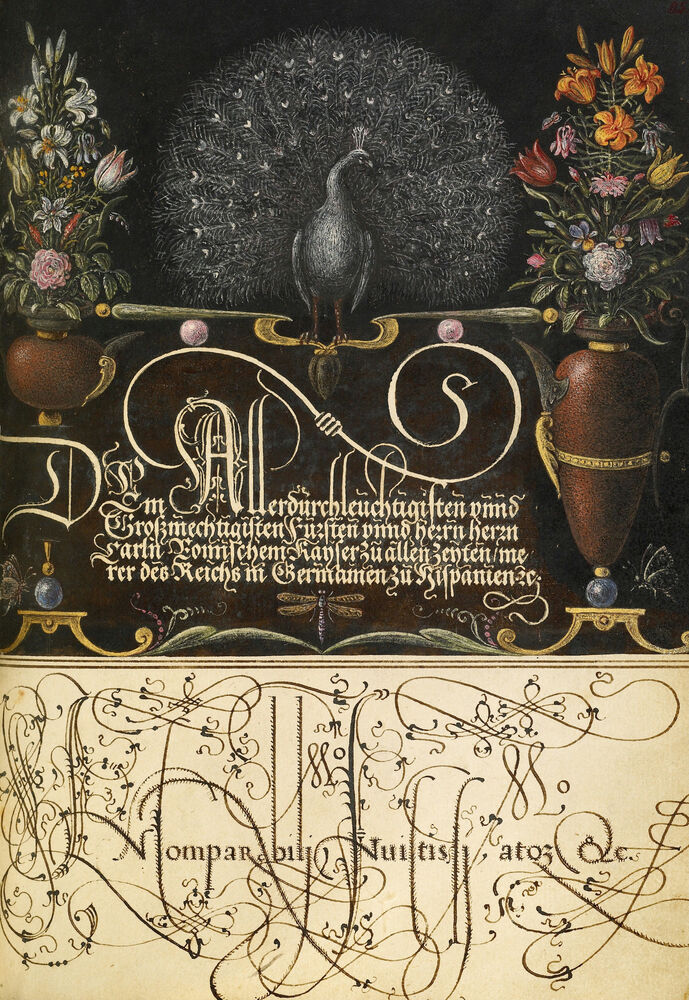 S
DEm Allerdurchleuchtigisten vnnd
Großmechtigisten Fürsten vnnd herrn herrn
Carln Romischem Kayser zů allen zeyten/ me
rer des Reichs in Germanien zů Hispanien ꝛc.
M.º M.º
&c.